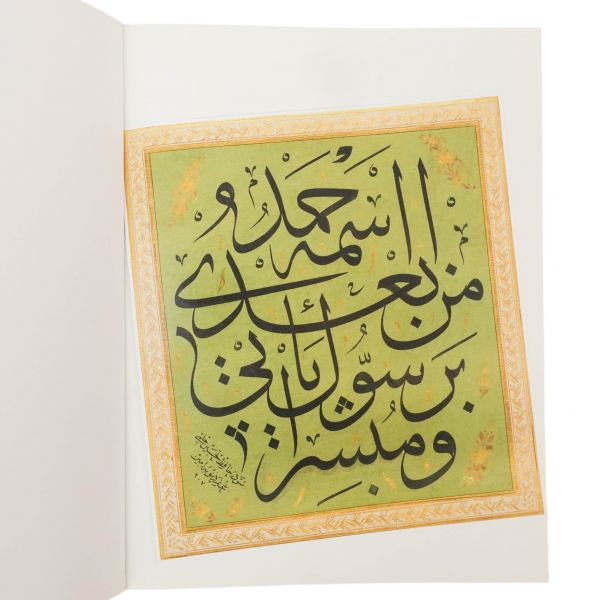 ومبشرا
برسول يأتي
من بعدي
اسمه أحمد